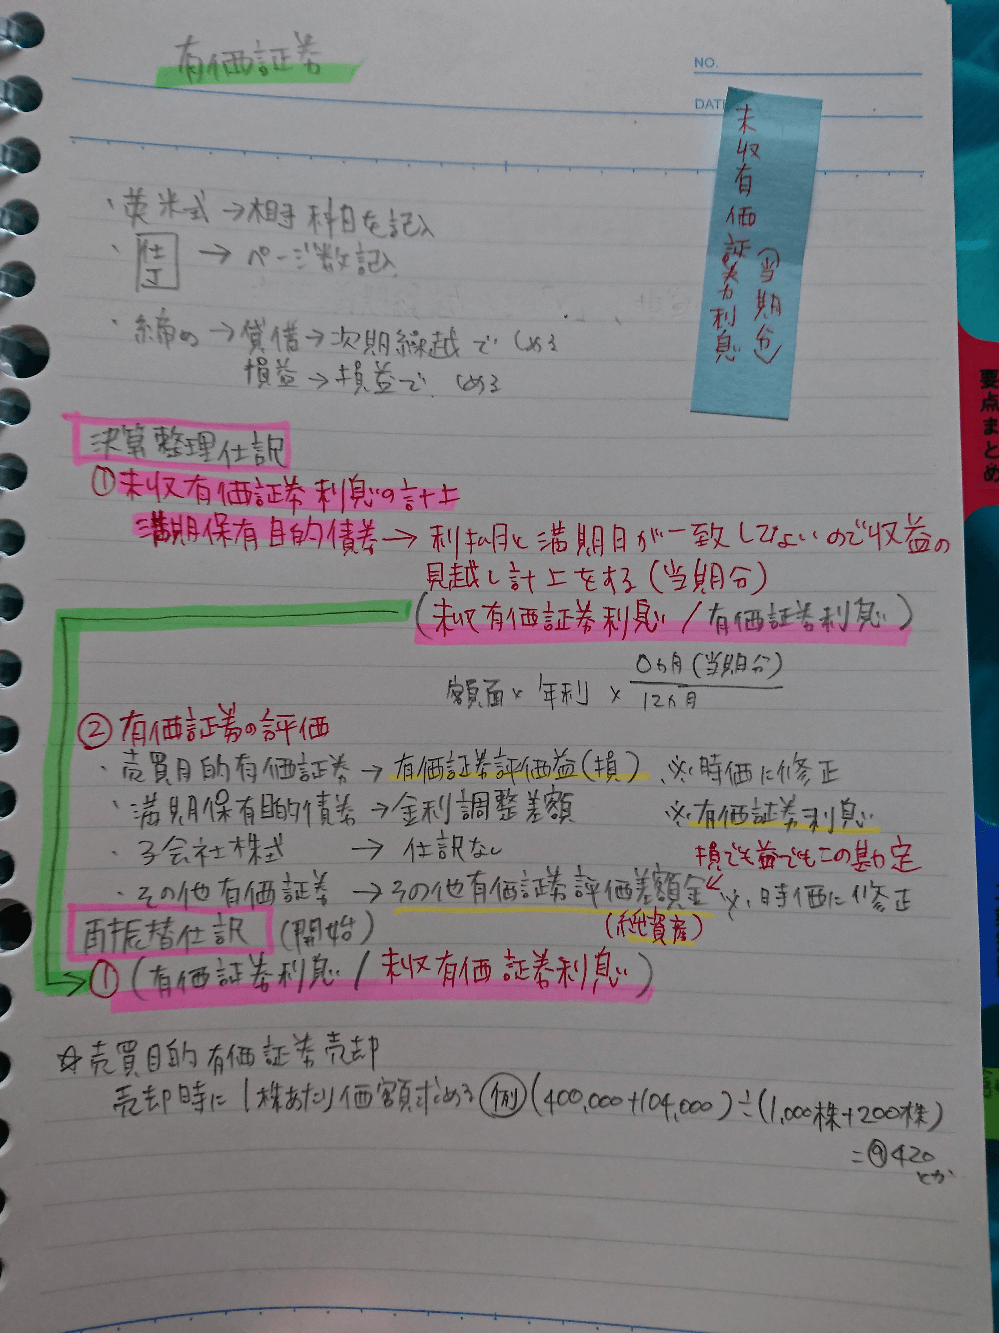 有価証券
NO.
DATE
未収有価証券利息
(当期分)
・英米式→相手科目を記入
・仕丁→ページ数記入
・締め→貸借→次期繰越でしめる
損益→損益でしめる
決算整理仕訳
①未収有価証券利息の計上
満期保有目的債券→利払日と満期日が一致してないので収益の
見越し計上をする(当期分)
(未収有価証券利息/有価証券利息)
額面×年利×0ヵ月(当期分)
12ヵ月
②有価証券の評価
・売買目的有価証券→有価証券評価益(損)、※時価に修正
・満期保有目的債券→金利調整差額 ※有価証券利息
・子会社株式→仕訳なし 損でも益でもこの勘定
・その他有価証券→その他有価証券評価差額金 ※時価に修正
(純資産)
再振替仕訳(開始)
①(有価証券利息/未収有価証券利息)
☆売買目的有価証券売却
売却時に1株あたり価額求める 例(400,000+104,000)÷(1,000株+200株)
=@420
とか
要点まとめ